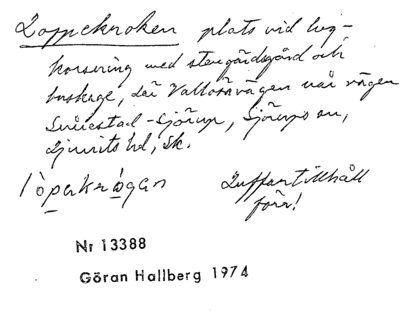 Loppekroken plats vid väg-
korsning med stengärdsgård och
buskage, där Vallösavägen når vägen
Snårestad - Sjörup, Sjörups sn,
Ljunits hd, Sk.
lòpәkrǫgәn
Luffartillhåll
förr!
Nr 13388
Göran Hallberg 1974